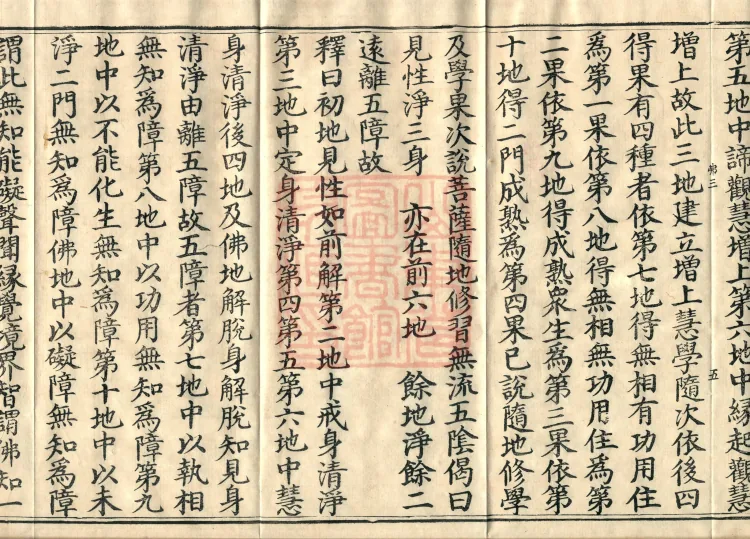 第五地中諦觀慧增上第六地中緣起觀慧
增上故此三地建立增上慧學隨次依後四
得果有四種者依第七地得無相有功用住
為第一果依第八地得無相無功用住為第
二果依第九地得成熟眾生為第三果依第
十地得二門成熟為第四果已說隨地修學
及學果次說菩薩隨地修習無流五陰偈曰
見性淨三身　亦在前六地　餘地淨餘二
遠離五障故
釋曰初地見性如前解第二地中戒身清淨
第三地中定身清淨第四第五第六地中慧
身清淨後四地及佛地解脫身解脫知見身
清淨由離五障故五障者第七地中以執相
無知為障第八地中以功用無知為障第九
地中以不能化生無知為障第十地中以未
淨二門無知為障佛地中以礙障無知為障
謂此無知能礙聲聞緣覺境界智謂佛知一
五